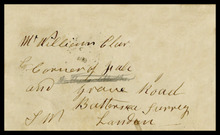 Mr William Clar
Corner of pale
and Grave Road
Battersea Surrey
S W London